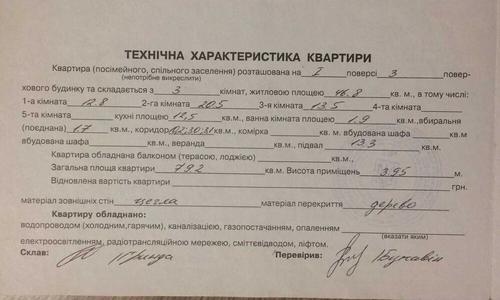 ТЕХНІЧНА ХАРАКТЕРИСТИКА КВАРТИРИ
Квартира (посімейного, спільного заселення) розташована на I поверсі 3 повер-
(непотрібне викреслити)
хового будинку та складається з 3 кімнат, житловою площею 46.8 кв. м., в тому числі:
1-а кімната 12.8 2-га кімната 20.5 3-я кімната 13.5 4-та кімната
5-та кімната кухні площею 12,5 кв.м., ванна кімната площею 1.9 кв.м., вбиральня
(поєднана) 1.7 кв.м., коридор кв.м., комірка кв.м. вбудована шафа кв.м
вбудована шафа кв.м., веранда кв.м., підвал 13.3 кв.м.
Квартира обладнана балконом (терасою, лоджією) кв.м.,
Загальна площа квартири 79.2 кв.м. Висота приміщень 3.95 м.
Відновлена вартість квартири грн.
матеріал зовнішніх стін цегла матеріал перекриття дерево
Квартиру обладнано:
водопроводом (холодним,гарячим), каналізацією, газопостачанням, опаленням
(вказати яким)
електроосвітленням, радіотрансляційною мережею, сміттєвідводом, ліфтом.
Склав: Перевірив: